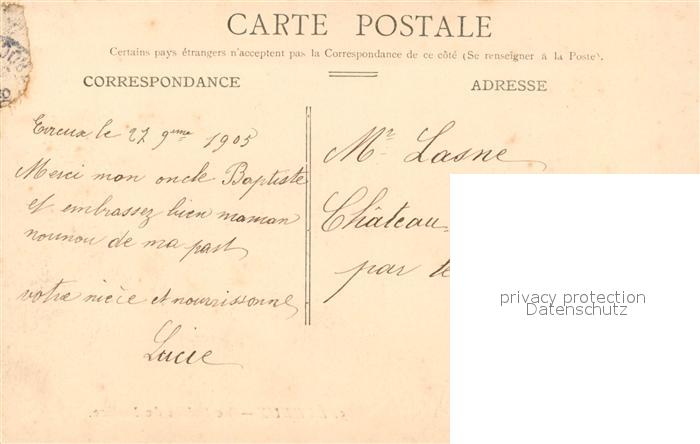 CARTE POSTALE
Certains pays étrangers n'acceptent pas la Correspondance de ce côté (Se renseigner à la Poste).
CORRESPONDANCE
ADRESSE
Evreux le 27 9eme 1905
Merci mon oncle Baptiste
et embrassez bien maman
nounou de ma part
votre nièce et nourrissonne
Lucie
Mr Lasne
Château
par
privacy protection
Datenschutz